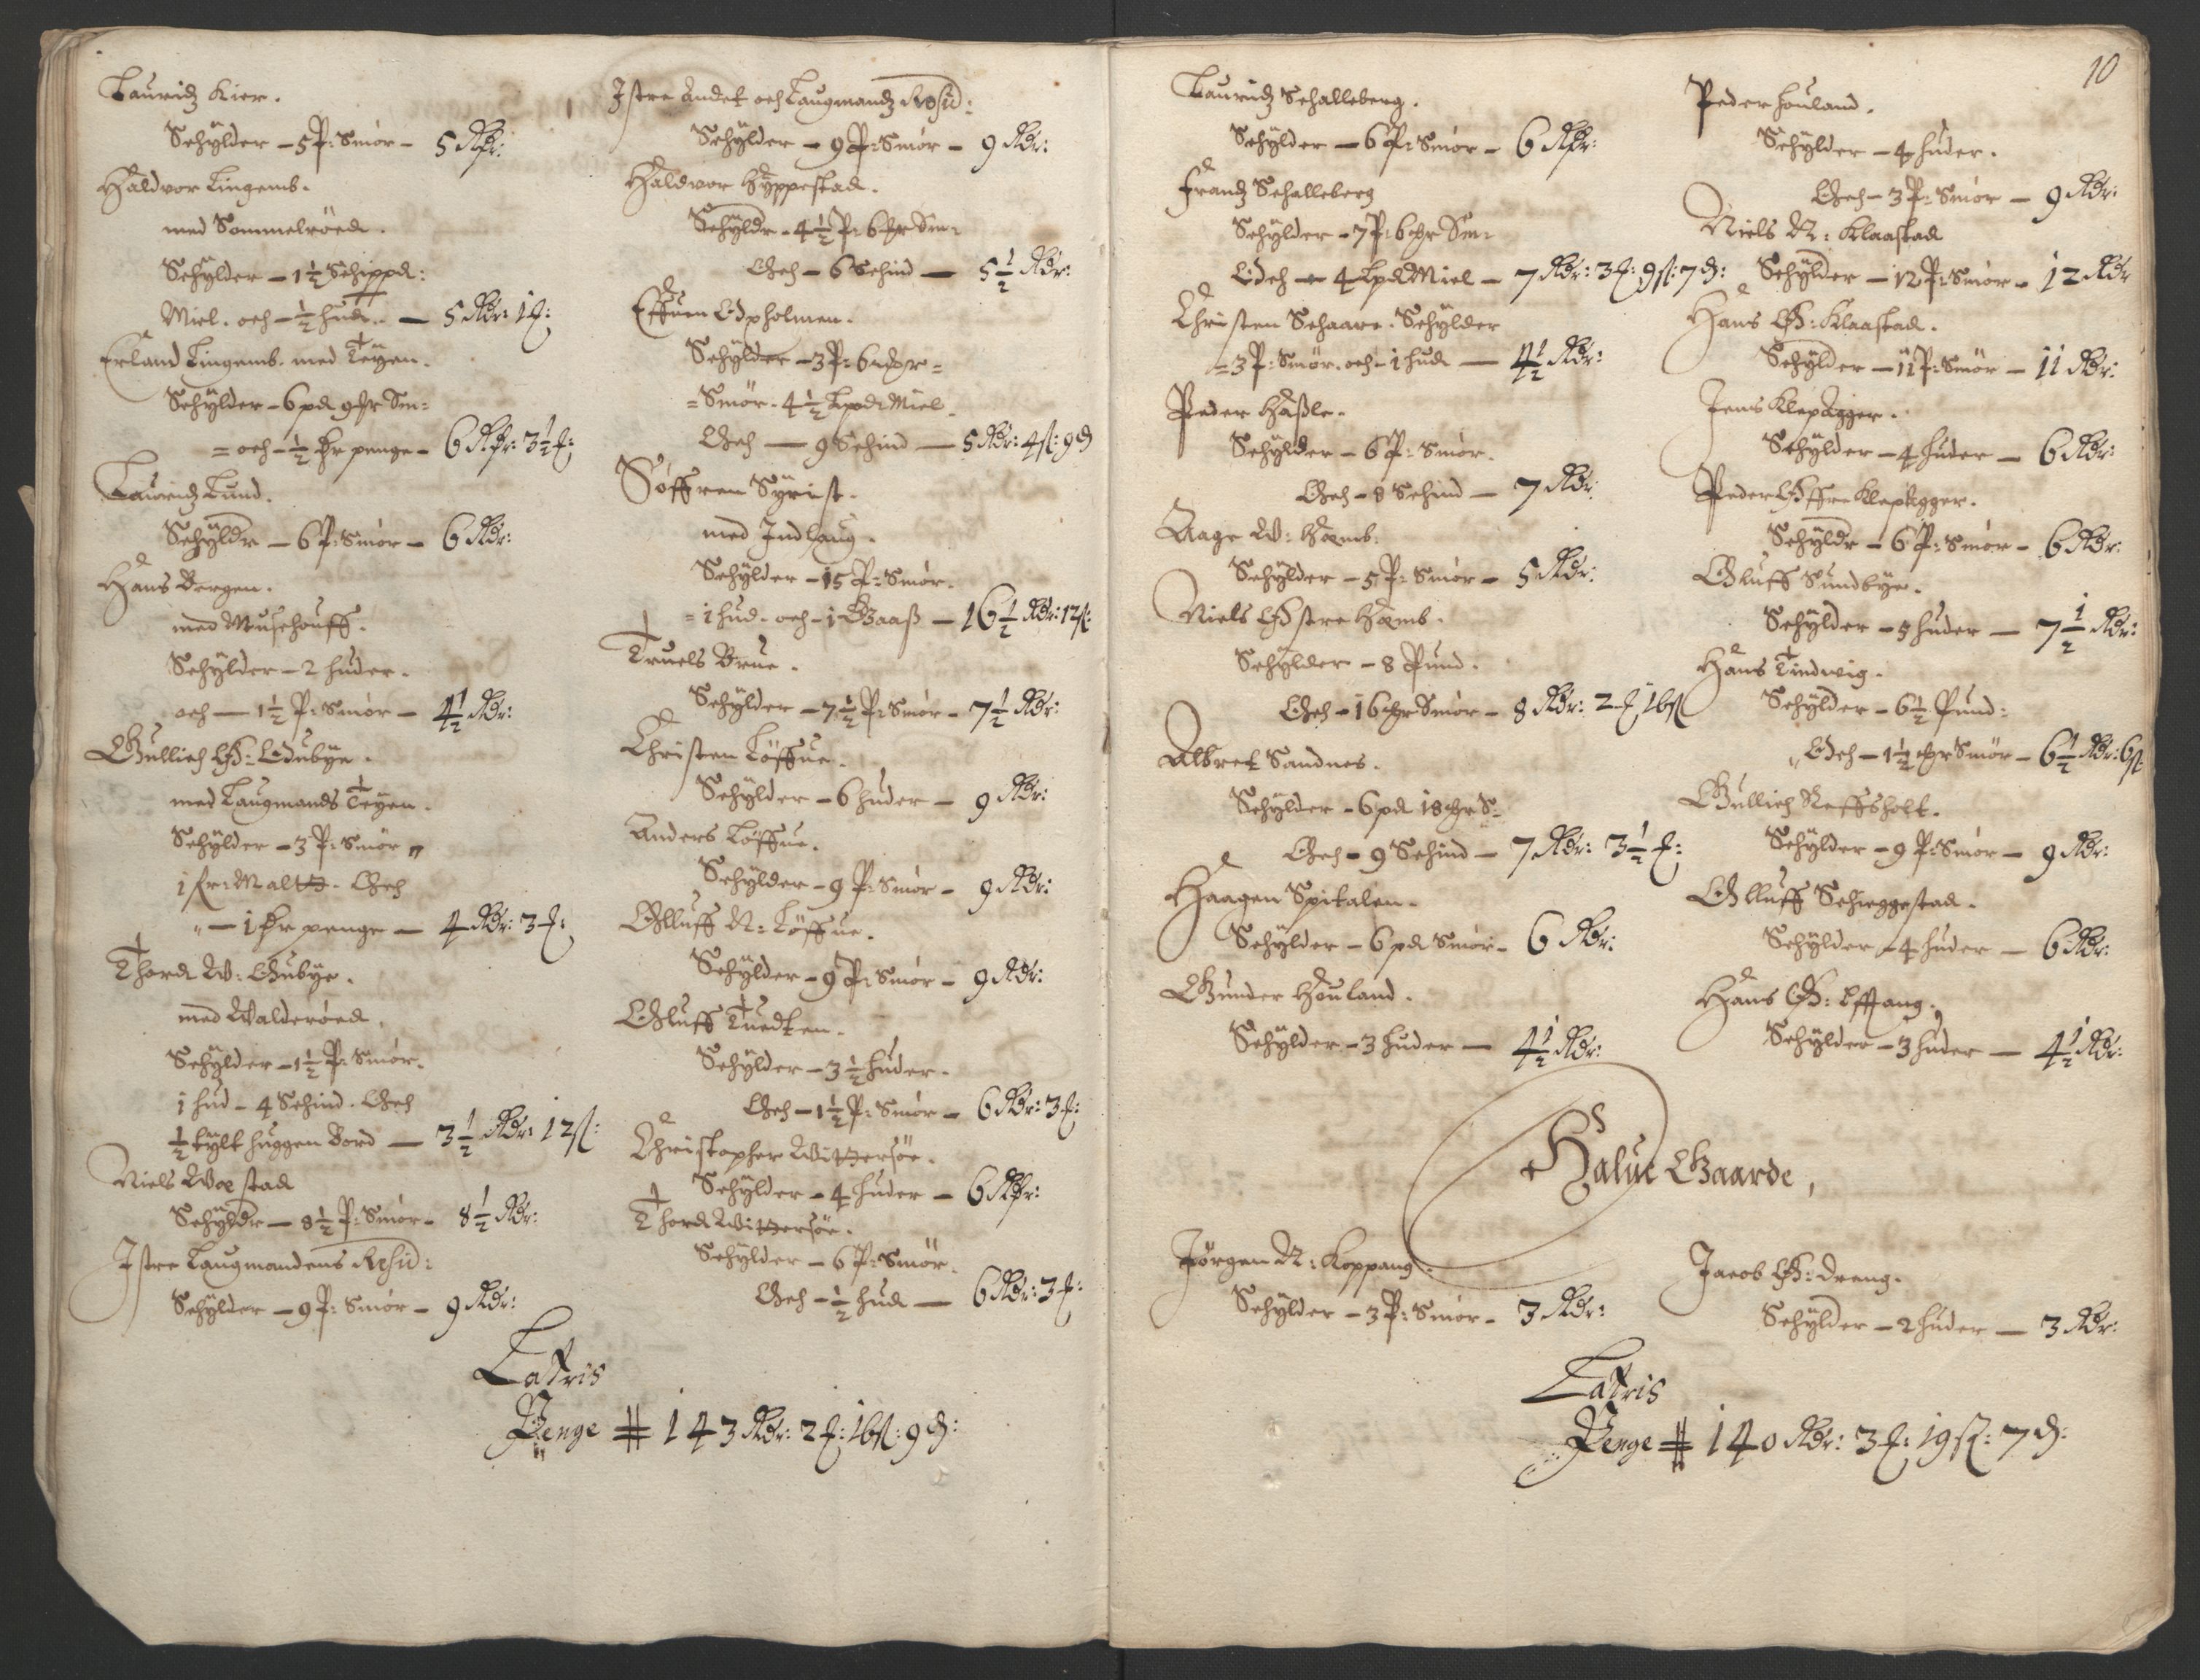 Lauridz Kier.
Schylder – 5 P: Smör – 5 Rdr:
Haldvor Lingemb.
med Sommelröed.
Schylder – 1½ Schippd:
Miel. och – ½ hud. – 5 Rdr: 1 f:
Erland Lingemb. med Teyen.
Schylder – 6 pd 9 mr Sm:
= och – ½ fr penge – 6 Rdr: 3½ f:
Lauridz Lund.
Schyldr – 6 P: Smör – 6 Rdr:
Hans Bergen.
med Musehouff.
Schylder – 2 huder.
och – 1½ P: Smör – 4½ Rdr:
Gullich Ø: Udubye.
med Laugmands Teyen.
Schylder – 3 P: Smör
1 fr: Maltt. Och
– 1 fr penge – 4 Rdr: 3 f:
Thord W: Gubye.
med Walderöed.
Schylder – 1½ P: Smör.
1 hud – 4 Schind. Och
½ tylt huggen Bord – 3½ Rdr: 12 s:
Niels Woestad
Schyldr – 8½ P: Smör – 8½ Rdr:
Istre Laugmandens Resid:
Schylder – 9 P: Smör – 9 Rdr:
Istre Andet och Laugmandz Resid:
Schylder – 9 P: Smör – 9 Rdr:
Haldvor Hyppestad.
Schyldr – 4½ P: 6 mr Sm:
Och – 6 Schind – 5½ Rdr:
Effuen Udpholmen.
Schylder – 3 P: 6 mr =
= Smör – 4½ Lpd Miel
Och – 9 Schind – 5 Rdr: 4 s: 9 d
Söffren Syrist.
med Indlaug.
Schylder – 15 P: Smör.
= 1 hud. och – 1 Gaaß – 16½ Rdr: 12 s:
Truels Brue.
Schylder – 7½ P: Smör – 7½ Rdr:
Christen Löffue.
Schylder – 6 huder – 9 Rdr:
Anders Löffue.
Schylder – 9 P: Smör – 9 Rdr:
Olluff N: Löffue.
Schylder – 9 P: Smör – 9 Rdr:
Oluff Tuedten.
Schylder – 3½ huder.
Och – 1½ P: Smör – 6 Rdr: 3 f:
Christopher Wittersöe.
Schylder – 4 huder – 6 Rdr:
Thord Wittersöe.
Schylder – 6 P: Smör.
Och – ½ hud – 6 Rdr: 3 f:
Lattris
Penge # 143 Rdr: 2 f: 16 s: 9 d:
10
Lauridz Schalleberg.
Schylder – 6 P: Smör – 6 Rdr:
Frandz Schalleberg
Schylder – 7 P: 6 mr Sm:
Och – 4 Lpd Miel – 7 Rdr: 3 f: 9 s: 7 d:
Christen Schaare. Schylder
= 3 P: Smör. och – 1 hud – 4½ Rdr:
Peder Haßle.
Schylder – 6 P: Smör.
Och – 8 Schind – 7 Rdr
Aage W: Hæmb.
Schylder – 5 P: Smör – 5 Rdr:
Niels Østre Hæmb.
Schylder – 8 Pund.
Och – 16 mr Smör – 8 Rdr: 2 f 16 s
Albret Sandnes.
Schylder – 6 pd 18 mr S
Och – 9 Schind – 7 Rdr: 3½ f:
Haagen Spitalen.
Schylder – 6 pd Smör – 6 Rdr:
Gunder Houland.
Schylder – 3 huder – 4½ Rdr:
Peder Houland.
Schylder – 4 huder.
Och – 3 P: Smör – 9 Rdr:
Niels N: Klaastad
Schylder – 12 P: Smör – 12 Rdr
Hans Ø: Klaastad.
Schylder – 11 P: Smör – 11 Rdr:
Jens Klepagger.
Schylder – 4 huder – 6 Rdr:
Peder Øffre Klepagger.
Schyldr – 6 P: Smör – 6 Rdr:
Oluff Sundbye.
Schylder – 5 huder – 7½ Rdr:
Hans Tindwig.
Schylder – 6½ Pund:
Och – 1½ mr Smör – 6½ Rdr: 6 s
Gullich Reffsholt.
Schylder – 9 P: Smör – 9 Rdr:
Olluff Schieggestad.
Schylder – 4 huder – 6 Rdr:
Hans Ø: Effang.
Schylder – 3 huder – 4½ Rdr:
Halue Gaarde,
Jörgen N: Koppang.
Schylder – 3 P: Smör – 3 Rdr:
Jacob Ø: Dreng.
Schylder – 2 huder – 3 Rdr:
Lattris
Penge # 140 Rdr: 3 f: 19 s: 7 d: